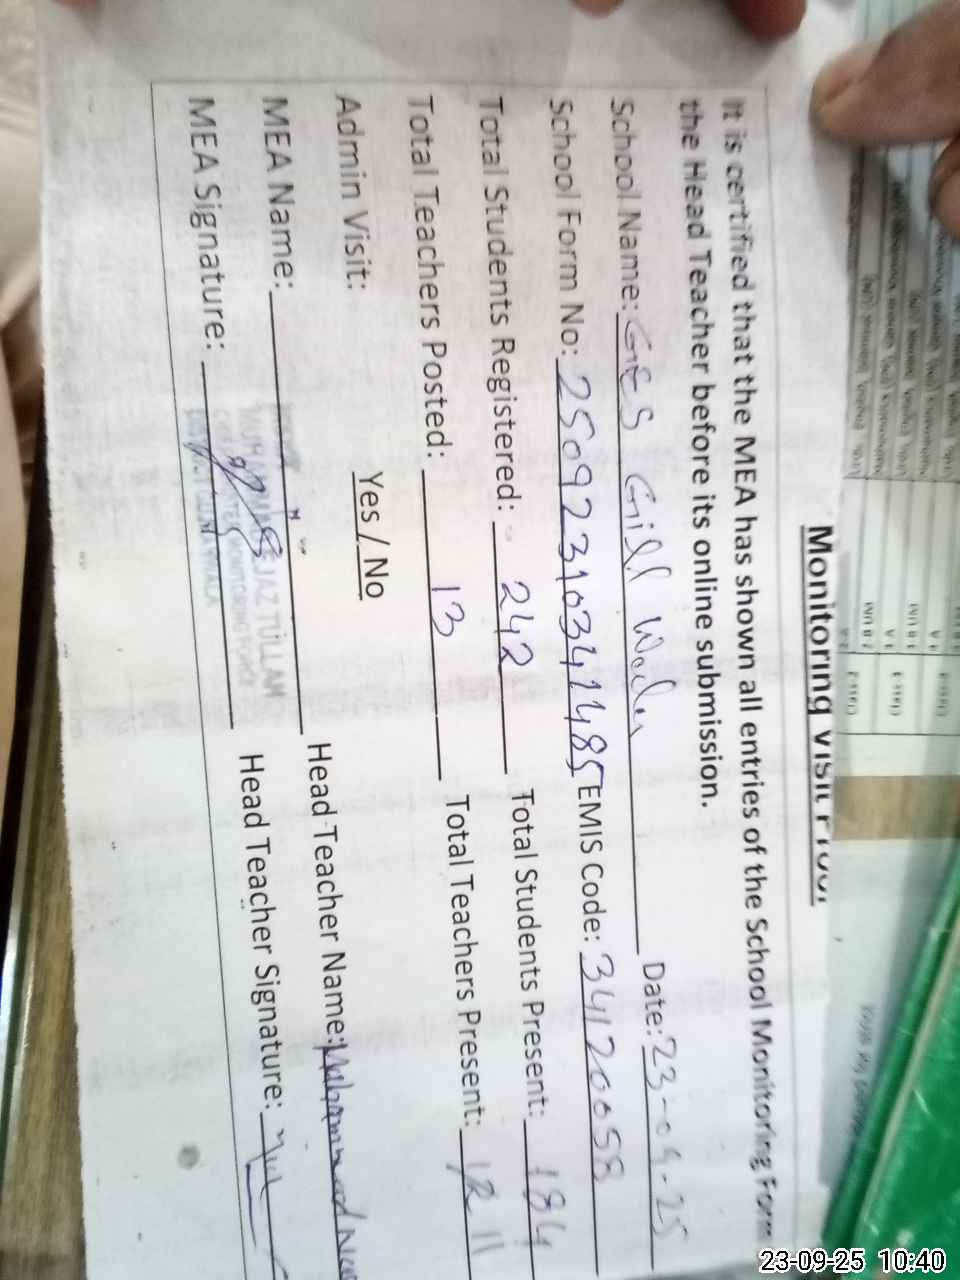 Monitoring Visit Proof
It is certified that the MEA has shown all entries of the School Monitoring Form
the Head Teacher before its online submission.
School Name: GES Gill Wala Date: 23-09-25
School Form No: 25092310341485 EMIS Code: 34120058
Total Students Registered: 242 Total Students Present: 184
Total Teachers Posted: 13 Total Teachers Present: 12 11
Admin Visit: Yes / No
MEA Name: Head Teacher Name: Muhammad
MUHAMMAD EJAZ TULLAH
MONITORING FORCE
MEA Signature: Head Teacher Signature:
23-09-25 10:40